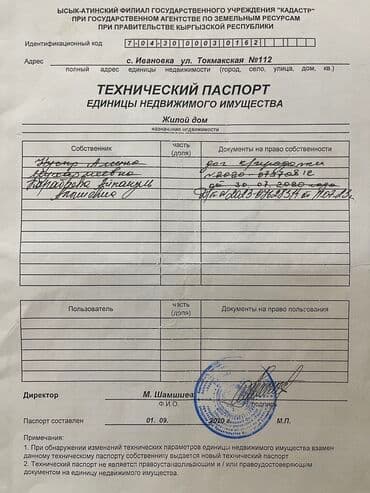 ЫСЫК-АТИНСКИЙ ФИЛИАЛ ГОСУДАРСТВЕННОГО УЧРЕЖДЕНИЯ "КАДАСТР"
ПРИ ГОСУДАРСТВЕННОМ АГЕНТСТВЕ ПО ЗЕМЕЛЬНЫМ РЕСУРСАМ
ПРИ ПРАВИТЕЛЬСТВЕ КЫРГЫЗСКОЙ РЕСПУБЛИКИ
Идентификационный код 7-04-3000030162
Адрес с. Ивановка ул. Токмакская №112
полный адрес единицы недвижимости (город, село, улица, дом, кв.)
ТЕХНИЧЕСКИЙ ПАСПОРТ
ЕДИНИЦЫ НЕДВИЖИМОГО ИМУЩЕСТВА
Жилой дом
назначение недвижимости
Собственник часть (доля) Документы на право собственности
дог к/продажи
от 30.07.2020 года
Пользователь часть (доля) Документы на право пользования
Директор М. Шамшиев
Ф.И.О. подпись
Паспорт составлен 01. 09. 2020 г. М.П.
Примечания:
1. При обнаружении изменений технических параметров единицы недвижимого имущества взамен
данному техническому паспорту собственнику выдается новый технический паспорт
2. Технический паспорт не является правоустанавливающим и / или правоудостоверяющим
документом на единицу недвижимого имущества.